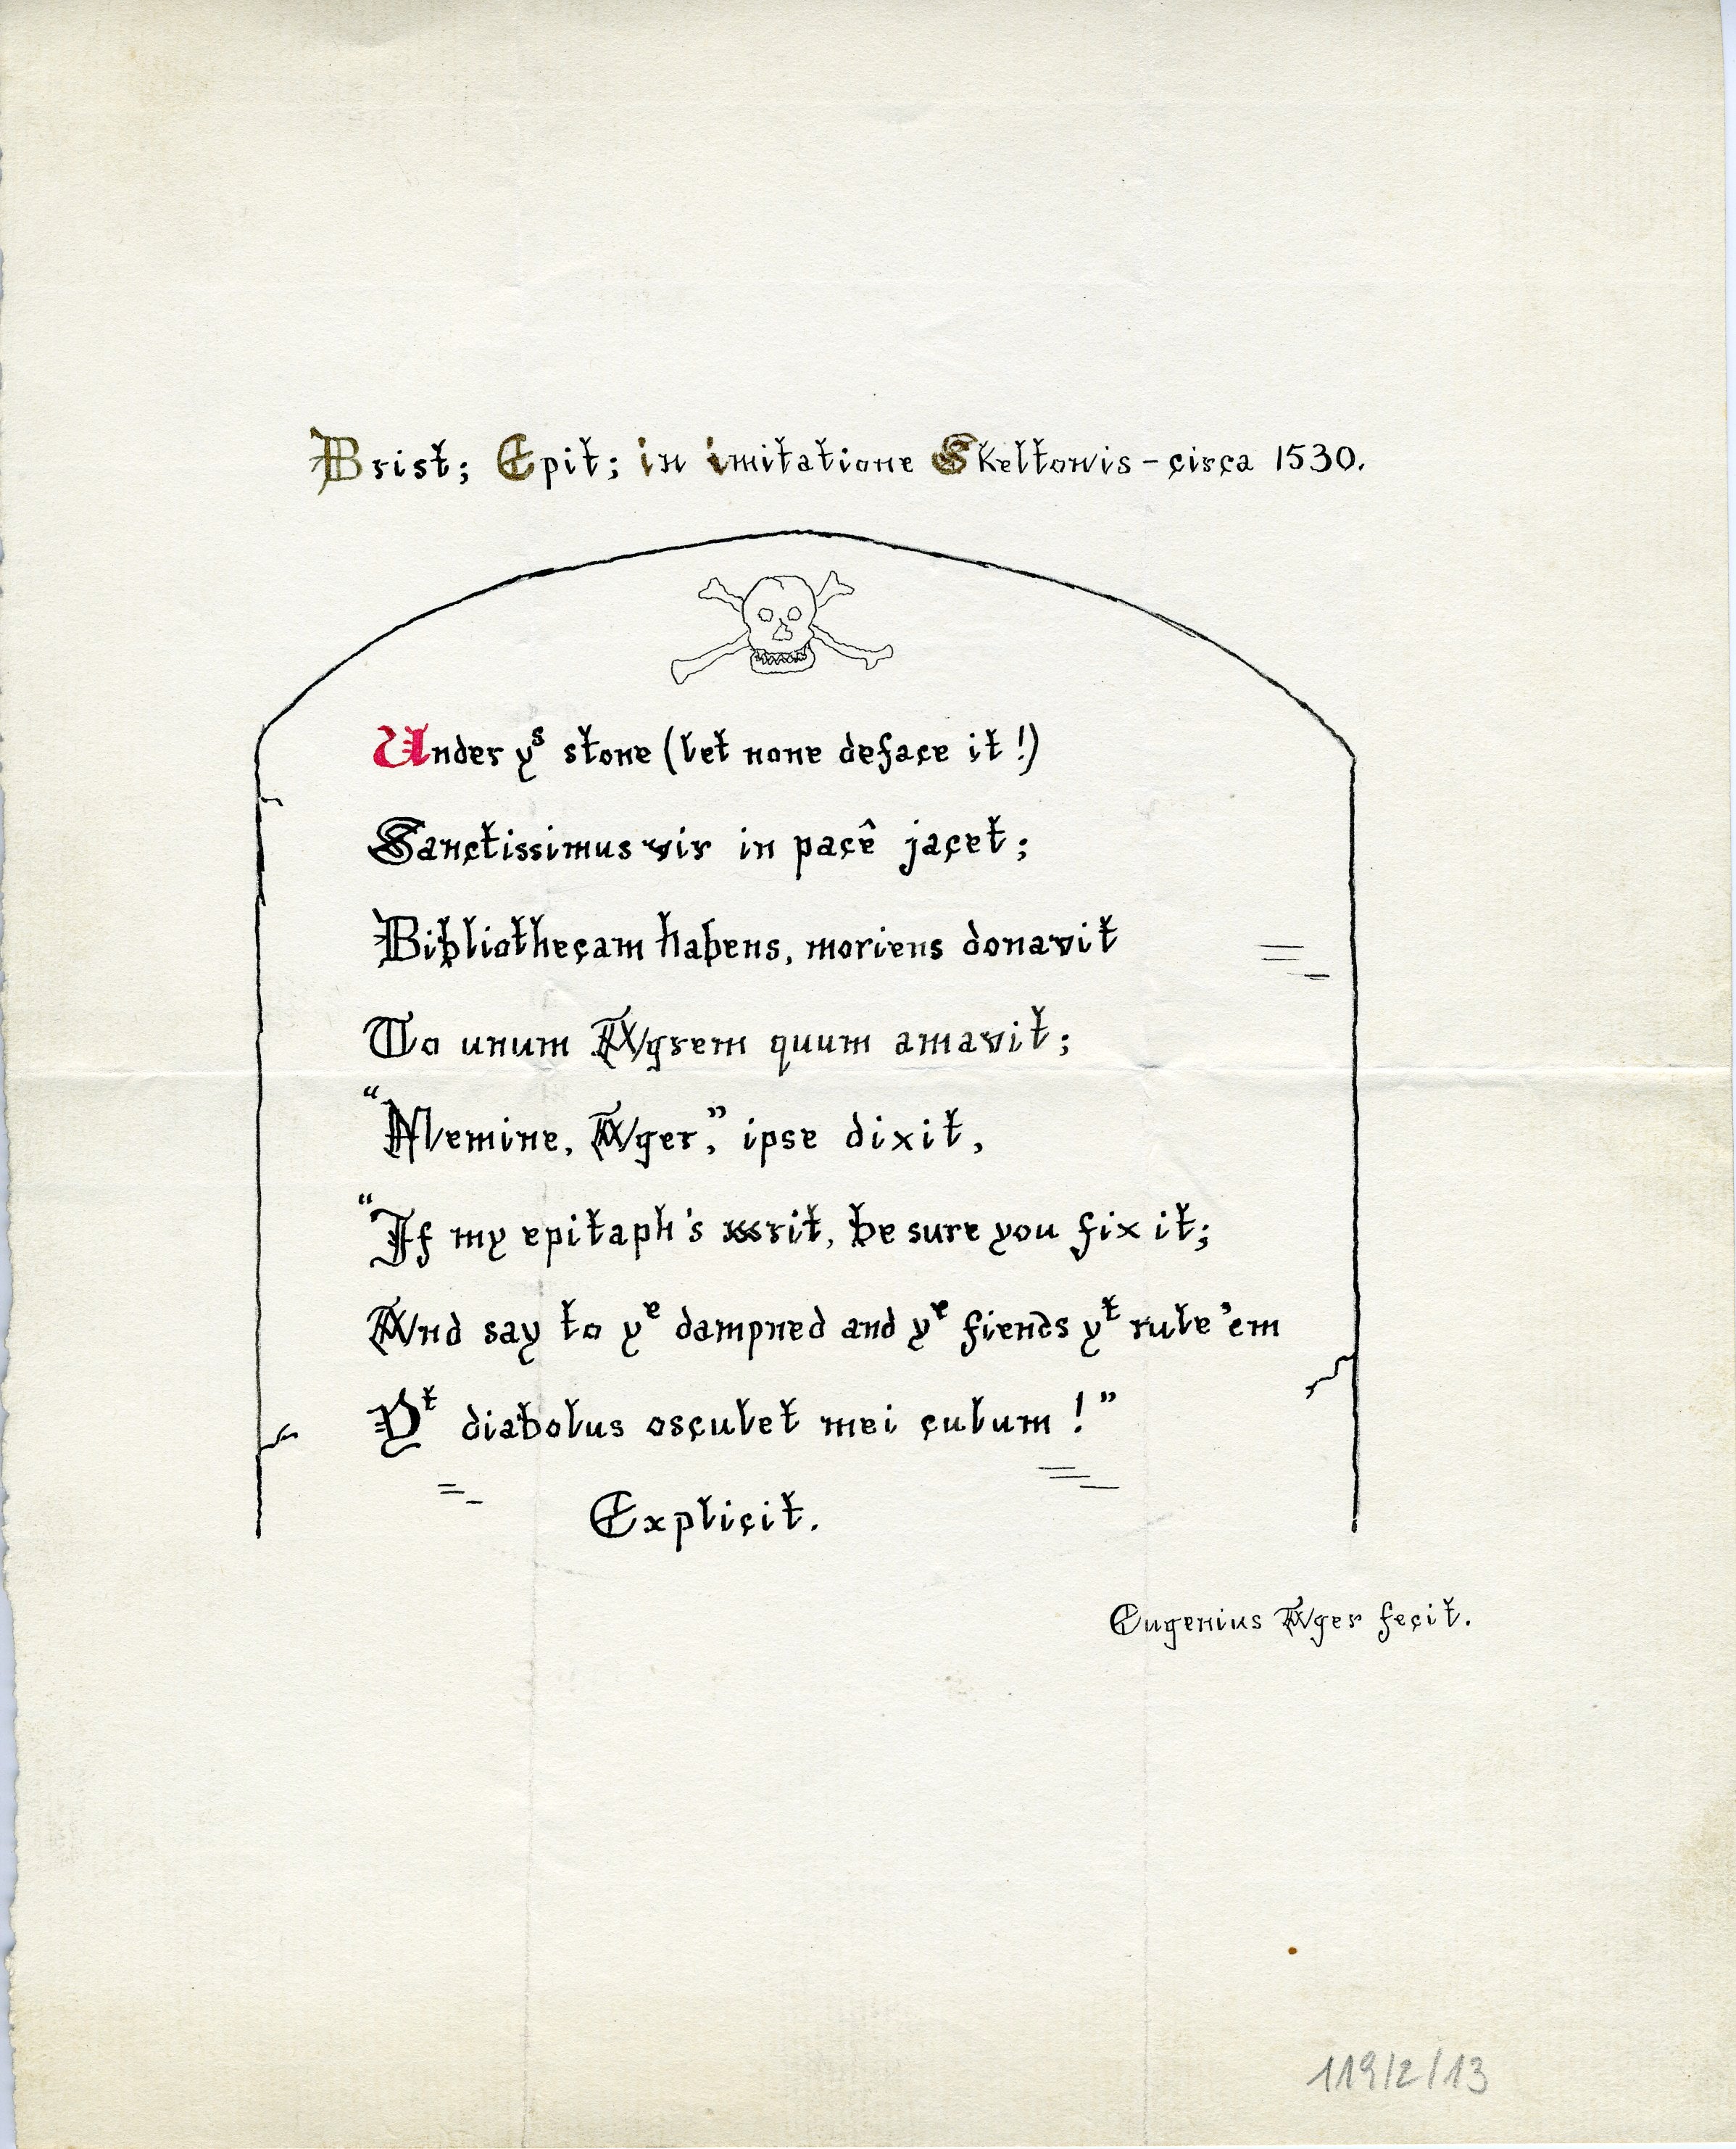 Brist; Epit; in imitatione Skeltonis - circa 1530.
Under yˢ stone (let none deface it!)
Sanctissimus vir in pacê jacet;
Bibliothecam habens, moriens donavit
To unum Agrem quum amavit;
"Memine, Ager," ipse dixit,
"If my epitaph's writ, be sure you fix it;
And say to yᵉ dampned and yᵉ fiends yᵗ rule 'em
Yᵗ diabolus osculet mei culum!"
Explicit.
Eugenius Ager fecit.
119/2/13